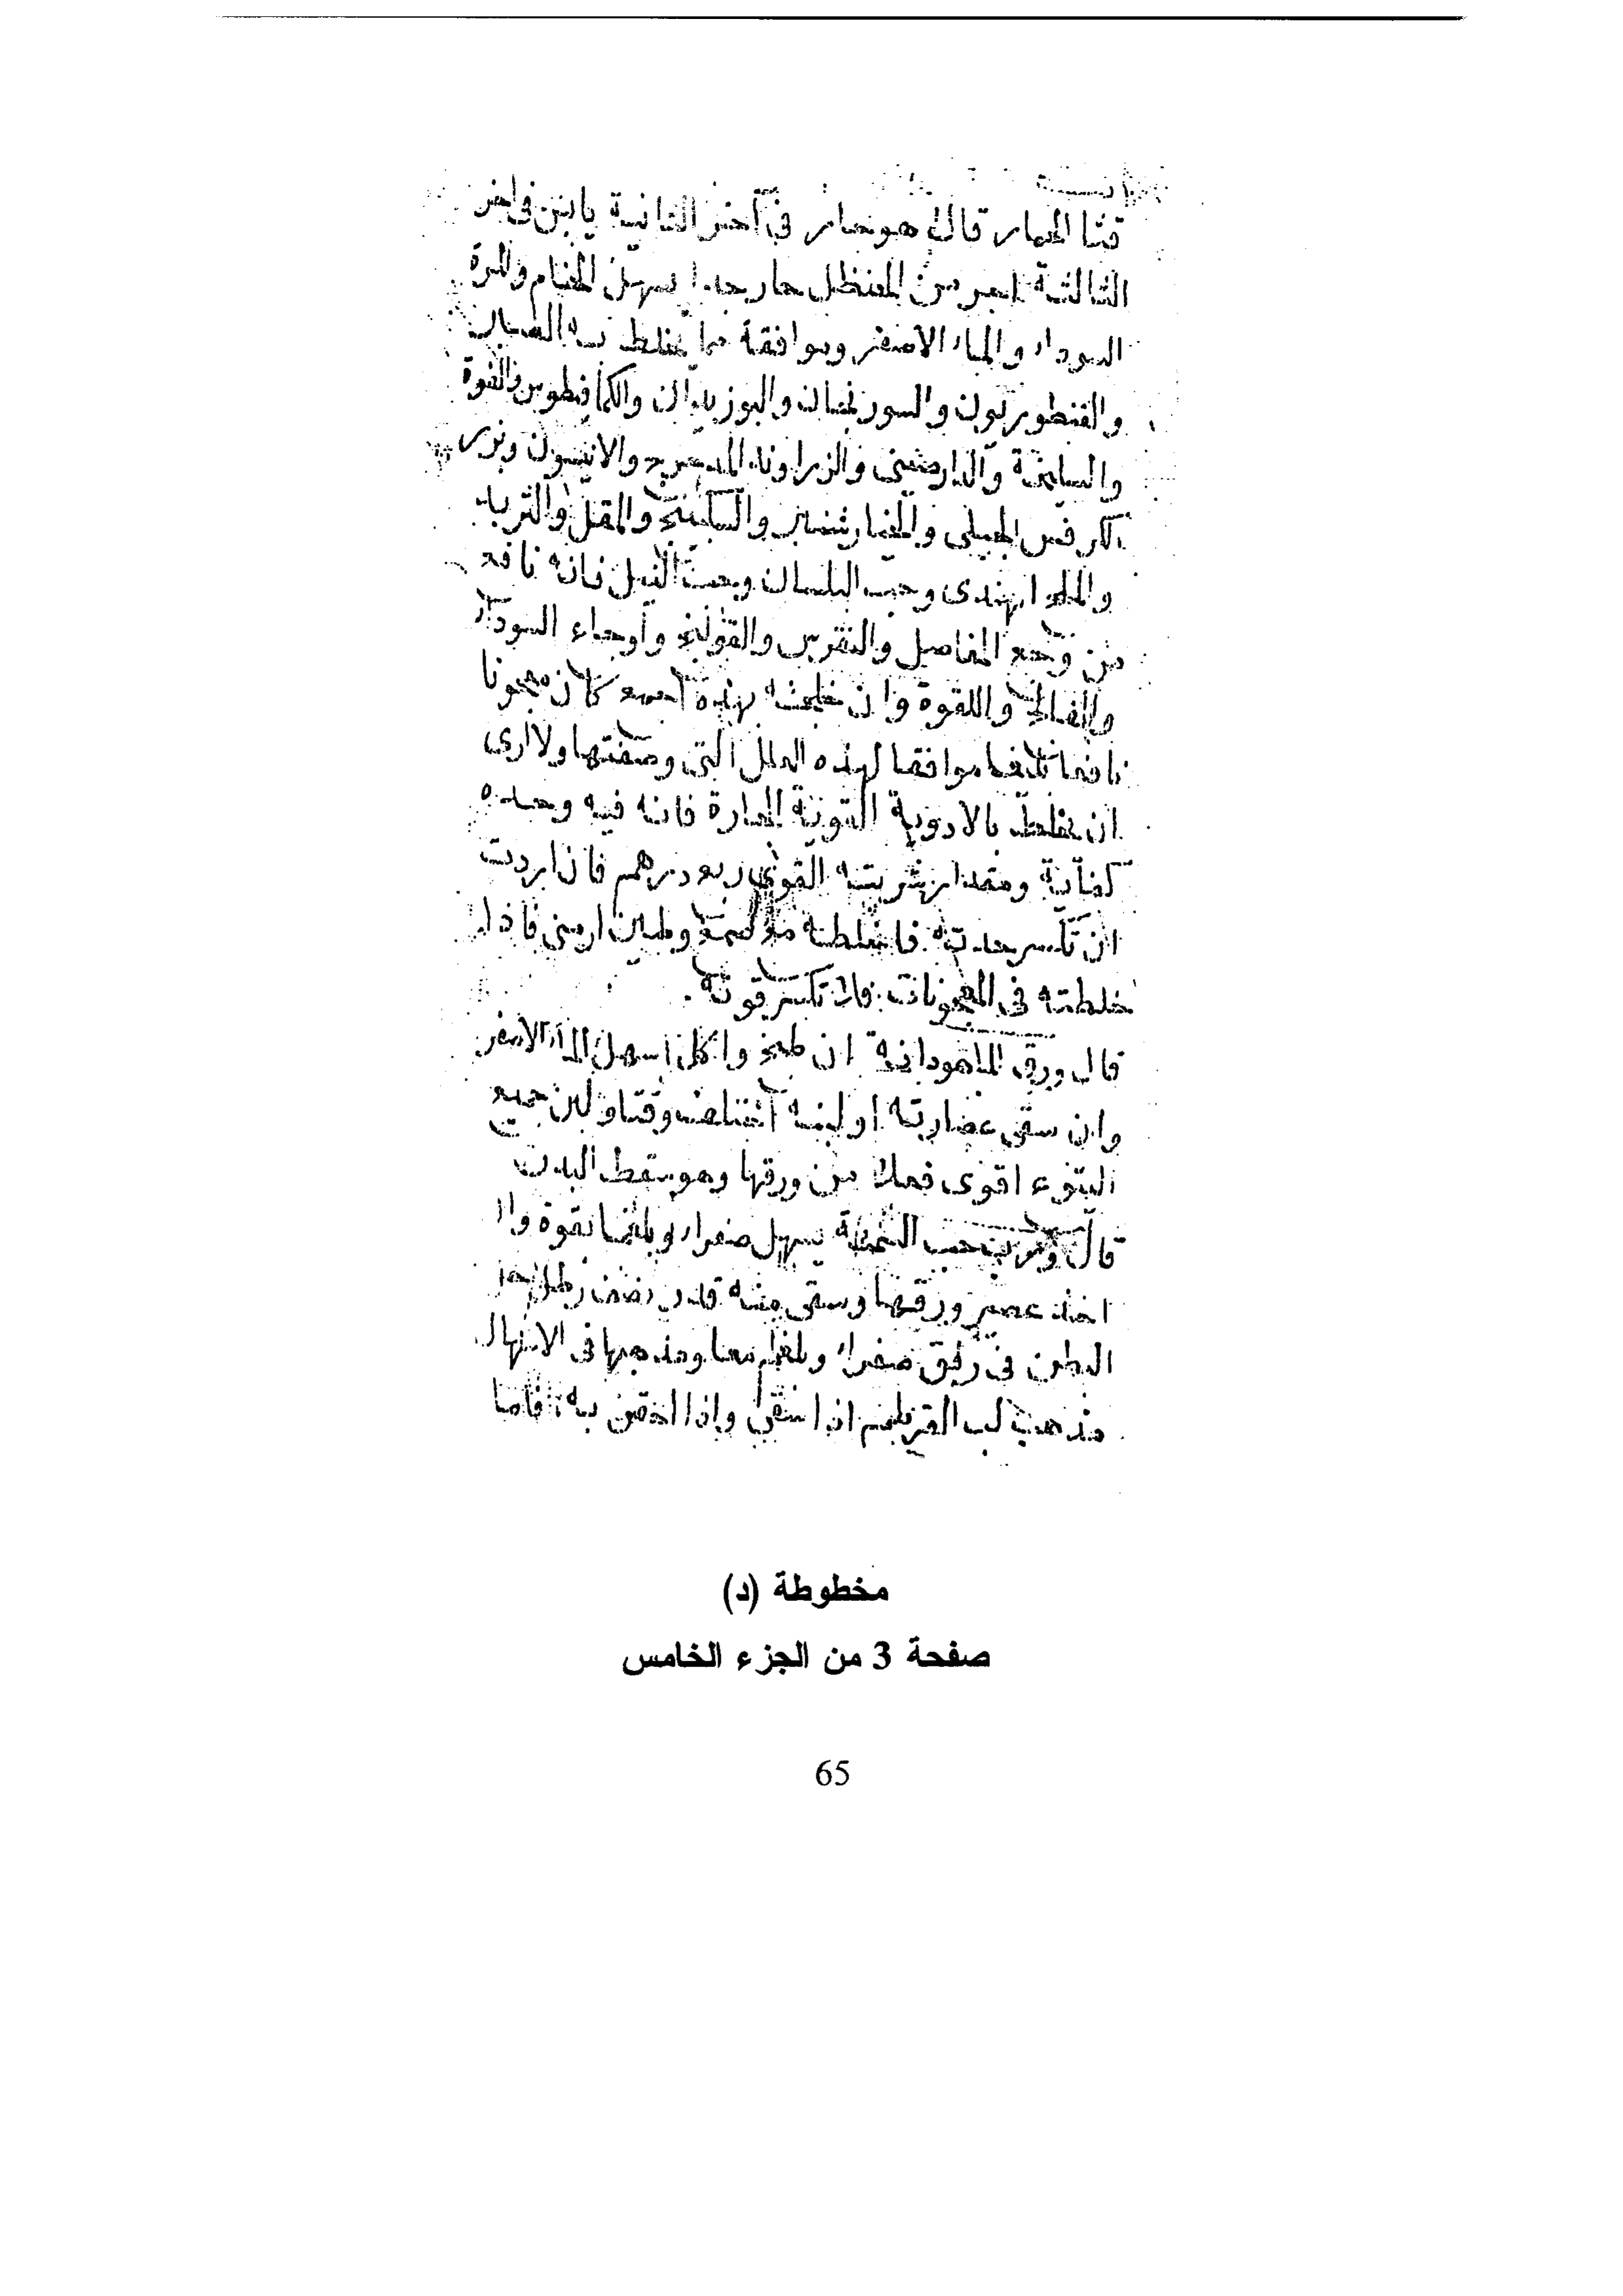 قثا الحمار قال هو حار في آخر الثانية يابس في اخر
الثالثة احر من الحنظل حار جدا يسهل الخام والمرة
السوداء والماء الاصفر وموافقة مما يخلط به الصبر
والقنطوريون والسورنجان والبوزيدان والكمافيطوس والفوة
والسليخة والدارصيني والزراوند المدحرج والانيسون وبزر
الكرفس الجبلى والخيارشنبر والسكبينج والمقل والتربد
والملح الهندى وحب البلسان وحب النيل فانه نافع
من وجع المفاصل والنقرس والقولنج وأوجاع السوداء
والفالج واللقوة وان خلطته بهذه اجمع كان معجونا
نافعا موافقا لهذه العلل التى وصفتها ولا ارى
ان يخلط بالادوية القوية الحارة فانه فيه وحده
كفاية ومقدار شربته القوى ربع درهم فان اردت
ان تكسر حدته فاخلطه مع صمغ وطين ارمنى فاذا
خلطته فى المعجونات فلا تكسر قوته.
قال ورق الماهودانه ان طبخ واكل اسهل الماء الاصفر
وان سقى عصارته او لبنه وقتا ولبن جميع
اليتوع اقوى فعلا من ورقها وهو يسقط البدن
قال حب يسهل صفراء وبلغما بقوة وان
اخذ عصير ورقها وسقى منه قدر نصف رطل
البطن فى رفق صفراء وبلغم معا ومذهبها فى الاسهال
مذهب لب القرطم اذا سقى واذا احتقن به فاما
مخطوطة (د)
صفحة 3 من الجزء الخامس
65